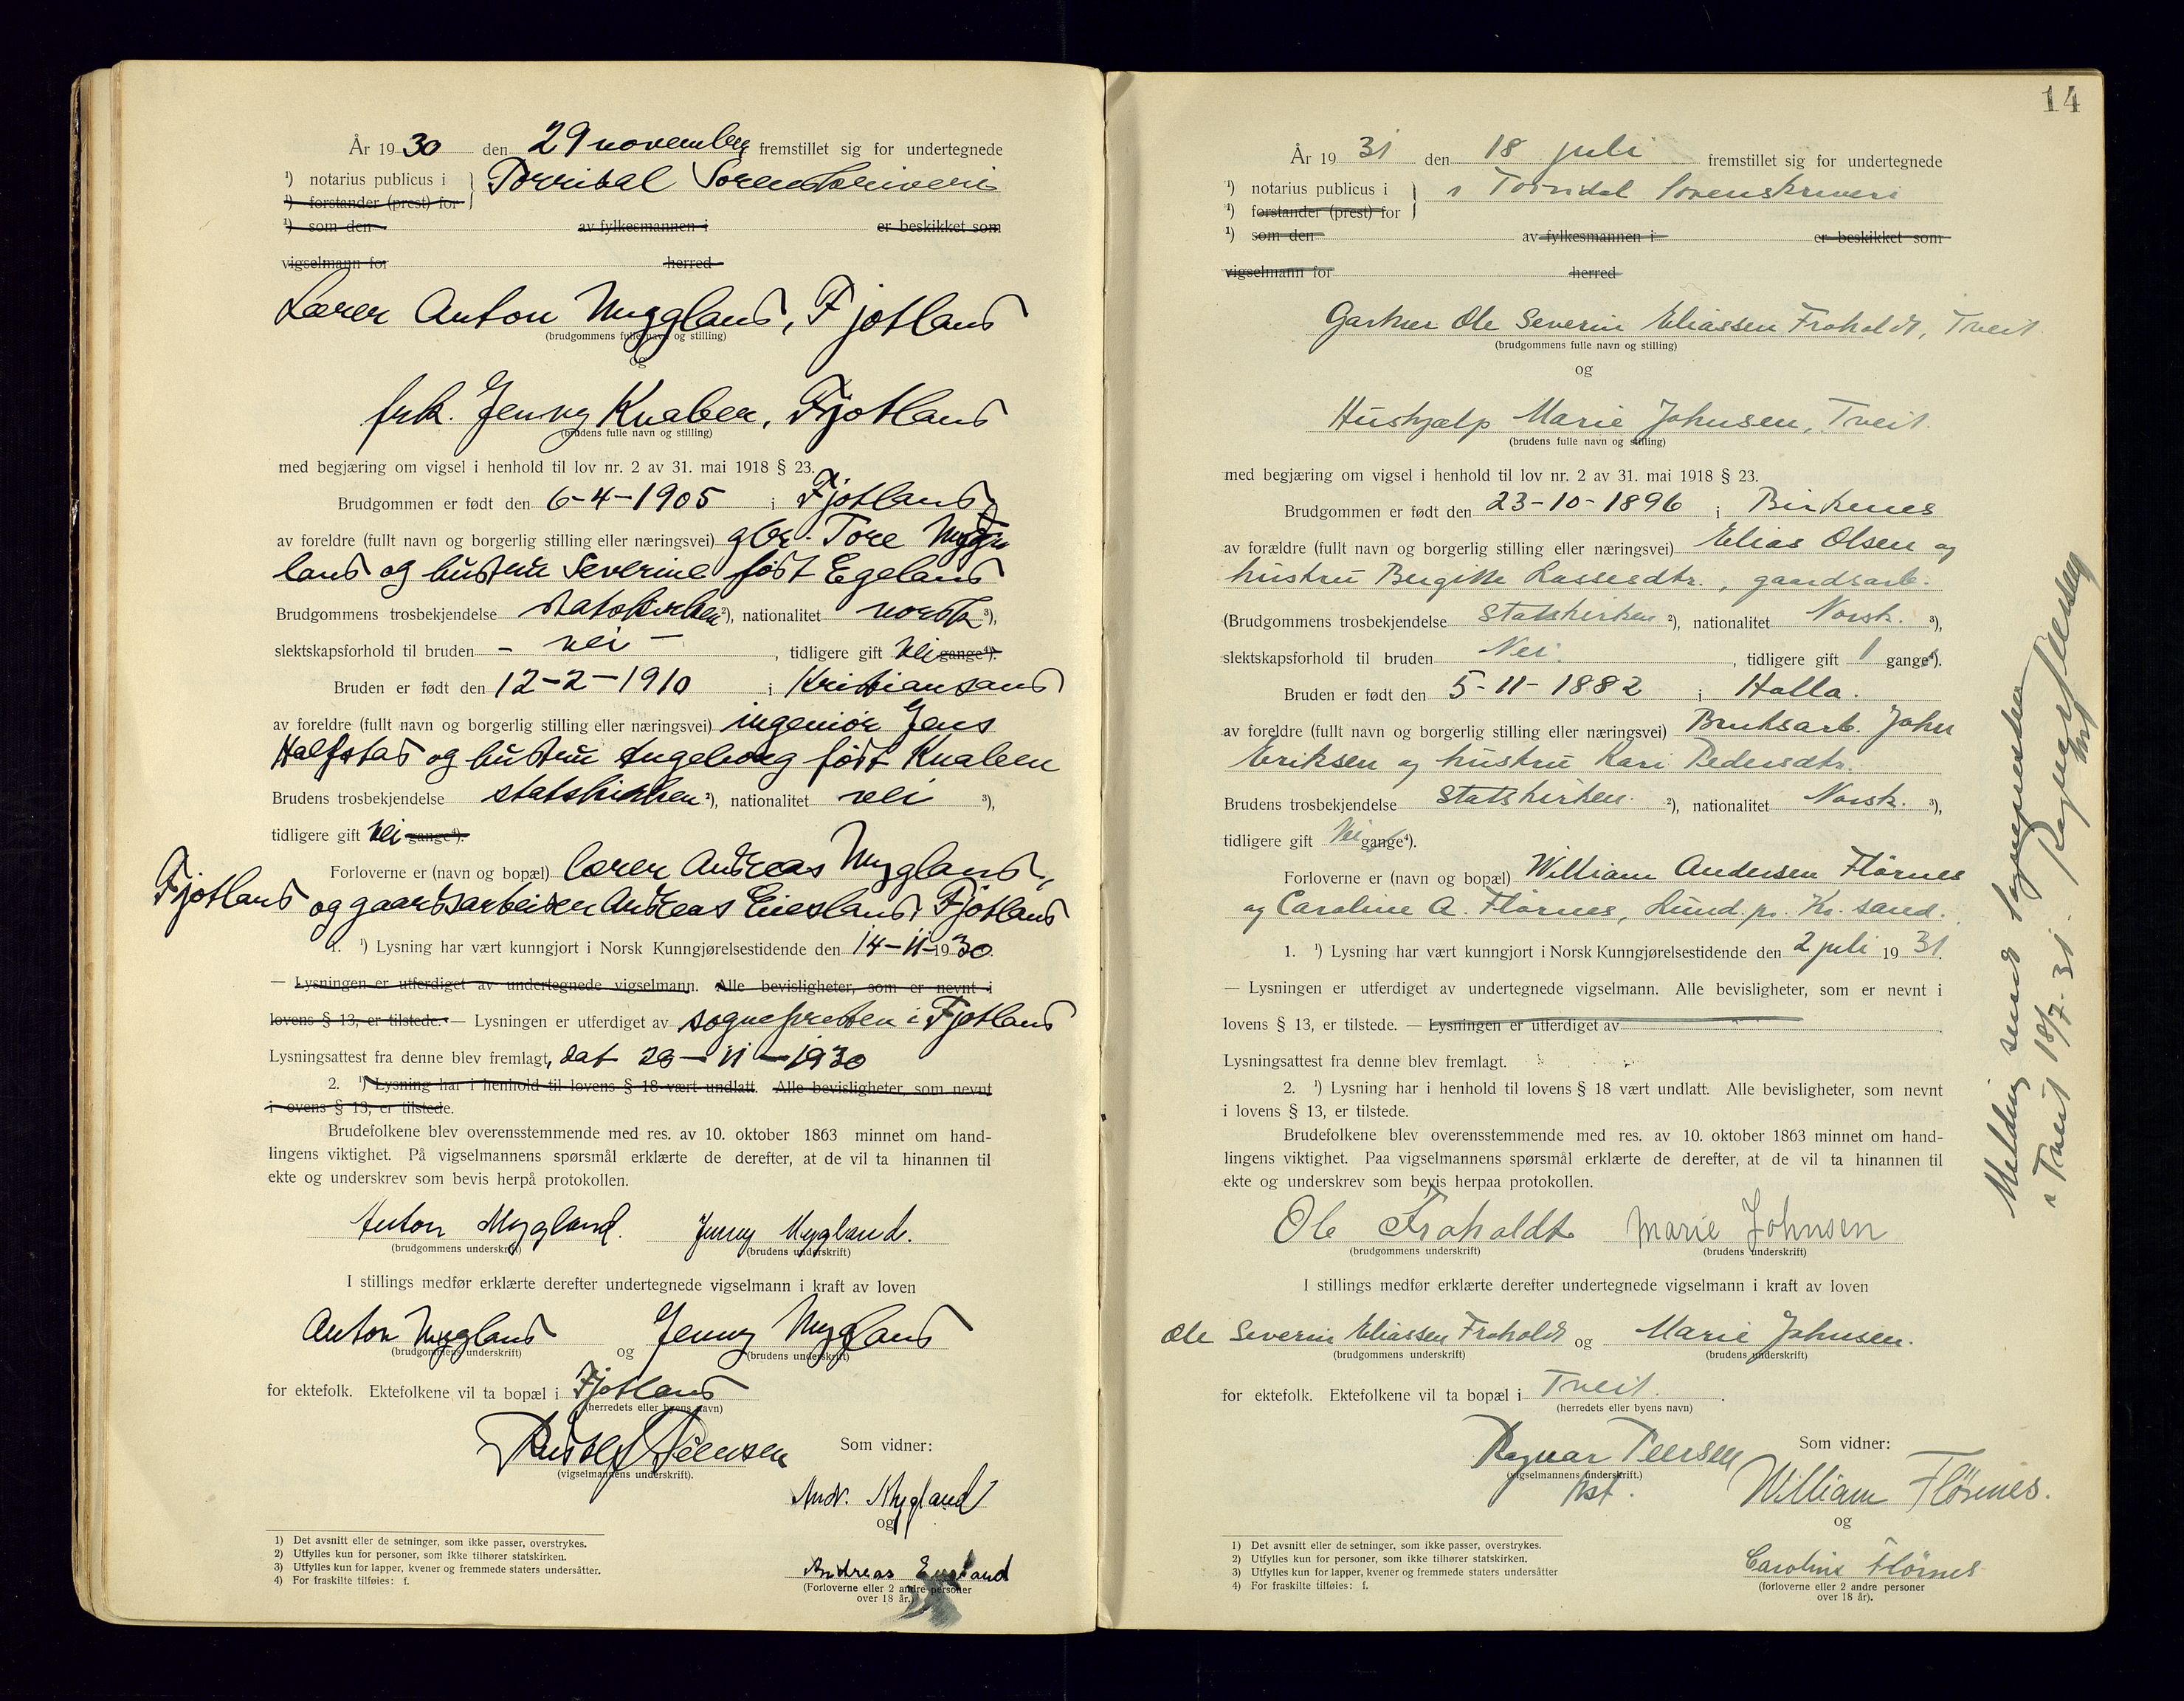 År 1930 den 29 november fremstillet sig for undertegnede
¹) notarius publicus i } Torridal Sorenskriveri
¹) forstander (prest) for
¹) som den av fylkesmannen i er beskikket som
vigselmann for herred
Lærer Anton Mygland, Fjotland
(brudgommens fulle navn og stilling)
og
frk. Jenny Knaben, Fjotland
(brudens fulle navn og stilling)
med begjæring om vigsel i henhold til lov nr. 2 av 31. mai 1918 § 23.
Brudgommen er født den 6-4-1905 i Fjotland
av foreldre (fullt navn og borgerlig stilling eller næringsvei) gbr. Tore Myg
land og hustru Severine født Egeland
Brudgommens trosbekjendelse statskirken ²), nationalitet norsk ³),
slektskapsforhold til bruden - nei - , tidligere gift Nei gange⁴).
Bruden er født den 12-2-1910 i Kristiansand
av foreldre (fullt navn og borgerlig stilling eller næringsvei) ingeniør Jens
Halfstad og hustru Ingeborg født Knaben
Brudens trosbekjendelse statskirken ²), nationalitet nei ³),
tidligere gift Nei gange⁴).
Forloverne er (navn og bopæl) lærer Andreas Mygland,
Fjotland og gaardsarbeider Andreas Eiesland, Fjotland
1. ¹) Lysning har vært kunngjort i Norsk Kunngjørelsestidende den 14-11-1930.
— Lysningen er utferdiget av undertegnede vigselmann. Alle bevisligheter, som er nevnt i
lovens § 13, er tilstede. — Lysningen er utferdiget av sognepresten i Fjotland
Lysningsattest fra denne blev fremlagt, dat 28-11-1930
2. ¹) Lysning har i henhold til lovens § 18 vært undlatt. Alle bevisligheter, som nevnt
i lovens § 13, er tilstede.
Brudefolkene blev overensstemmende med res. av 10. oktober 1863 minnet om hand-
lingens viktighet. På vigselmannens spørsmål erklærte de derefter, at de vil ta hinannen til
ekte og underskrev som bevis herpå protokollen.
Anton Mygland. Jenny Mygland.
(brudgommens underskrift) (brudens underskrift)
I stillings medfør erklærte derefter undertegnede vigselmann i kraft av loven
Anton Mygland og Jenny Mygland
(brudgommens underskrift) (brudens underskrift)
for ektefolk. Ektefolkene vil ta bopæl i Fjotland
(herredets eller byens navn)
Som vidner:
(vigselmannens underskrift).
Andr. Mygland
og
Andreas Eiesland
(Forloverne eller 2 andre personer
over 18 år.)
1) Det avsnitt eller de setninger, som ikke passer, overstrykes.
2) Utfylles kun for personer, som ikke tilhører statskirken.
3) Utfylles kun for lapper, kvener og fremmede staters undersåtter.
4) For fraskilte tilføies: f.
14
År 1931 den 18 juli fremstillet sig for undertegnede
¹) notarius publicus i } i Torridal Sorenskriveri
¹) forstander (prest) for
¹) som den av fylkesmannen i er beskikket som
vigselmann for herred
Gartner Ole Severin Eliassen Froholdt, Tveit
(brudgommens fulle navn og stilling)
og
Hushjælp Marie Johnsen, Tveit.
(brudens fulle navn og stilling)
med begjæring om vigsel i henhold til lov nr. 2 av 31. mai 1918 § 23.
Brudgommen er født den 23-10-1896 i Birkenes
av forældre (fullt navn og borgerlig stilling eller næringsvei) Elias Olsen og
hustru Bergitte Lassesdtr., gaardsarb.
(Brudgommens trosbekjendelse Statskirken ²), nationalitet Norsk. ³),
slektskapsforhold til bruden Nei. , tidligere gift 1 gange⁴).
Bruden er født den 5-11-1882 i Holla.
av foreldre (fullt navn og borgerlig stilling eller næringsvei) Bruksarb. John
Eriksen og hustru Kari Pedersdtr.
Brudens trosbekjendelse Statskirken. ²), nationalitet Norsk. ³),
tidligere gift Nei gange⁴).
Forloverne er (navn og bopæl) William Andersen Flørnes
og Caroline A. Flørnes, Lund pr. Kr. sand.
1. ¹) Lysning har vært kunngjort i Norsk Kunngjørelsestidende den 2 juli 1931.
— Lysningen er utferdiget av undertegnede vigselmann. Alle bevisligheter, som er nevnt i
lovens § 13, er tilstede. — Lysningen er utferdiget av
Lysningsattest fra denne blev fremlagt.
2. ¹) Lysning har i henhold til lovens § 18 vært undlatt. Alle bevisligheter, som nevnt
i lovens § 13, er tilstede.
Brudefolkene blev overensstemmende med res. av 10. oktober 1863 minnet om hand-
lingens viktighet. Paa vigselmannens spørsmål erklærte de derefter, at de vil ta hinannen til
ekte og underskrev som bevis herpaa protokollen.
Ole Froholdt Marie Johnsen
(brudgommens underskrift) (brudens underskrift)
I stillings medfør erklærte derefter undertegnede vigselmann i kraft av loven
Ole Severin Eliassen Froholdt og Marie Johnsen.
(brudgommens underskrift) (brudens underskrift)
for ektefolk. Ektefolkene vil ta bopæl i Tveit.
(herredets eller byens navn)
Ragnar Teersen Som vidner:
(vigselmannens underskrift.)
William Flørnes.
og
Caroline Flørnes
(forloverne eller 2 andre personer
over 18 år).
1) Det avsnitt eller de setninger, som ikke passer, overstrykes.
2) Utfylles kun for personer, som ikke tilhører statskirken.
3) Utfylles kun for lapper, kvener og fremmede staters undersåtter
4) For fraskilte tilføies: f.
Melding sendt sognepresten
i Tveit 18/7-31. Ragnar Teersen